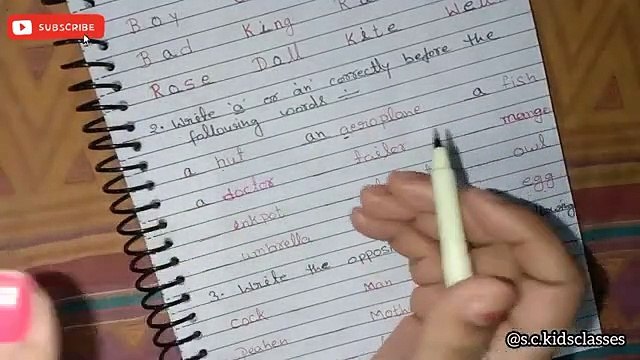 SUBSCRIBE
Boy King
Bad Doll Kite Well
Rose
2. Write 'a' or 'an' correctly before the
following words :-
a hut an aeroplane a fish
a doctor tailor mange
inkpot owl
umbrella egg
3. Write the
cock Man
Moth
@s.c.kidsclasses